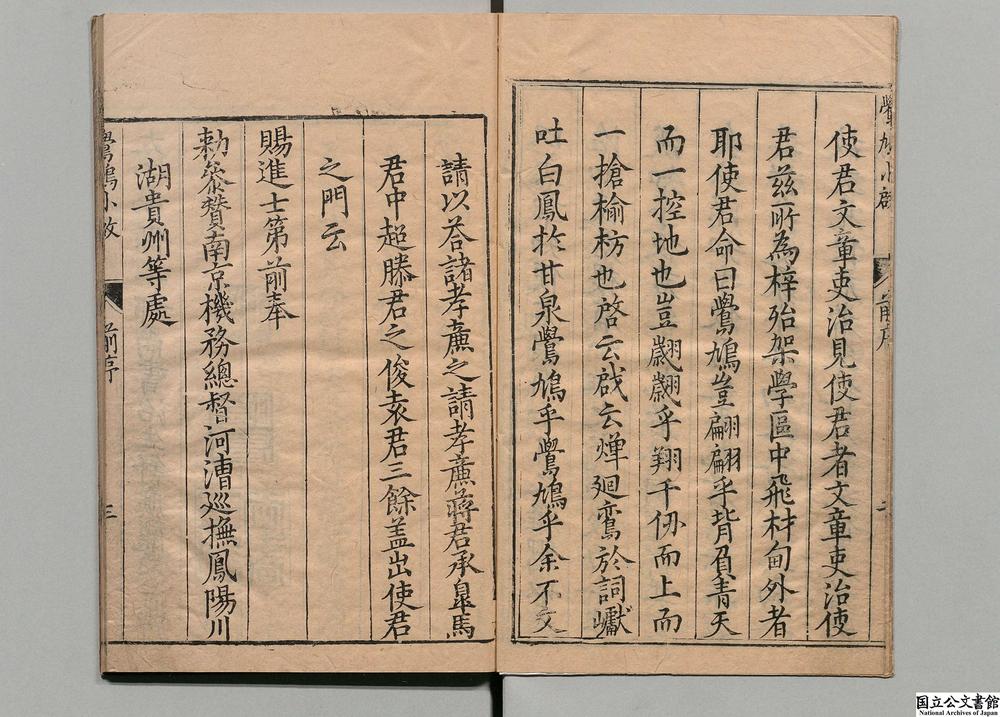 使君文章吏治見使君者文章吏治使
君茲所為梓殆架學區中飛材甸外者
耶使君命曰鷽鳩豈翩翩乎背負青天
而一控地也豈翽翽乎翔千仞而上而
一搶榆枋也啓云戱云燀廻鸞於詞巘
吐白鳳扵甘泉鷽鳩乎鷽鳩乎余不文
前序
請以荅諸孝廉之請孝廉蔣君承㫖馬
君中超滕君之俊袁君三餘盖出使君
之門云
賜進士第前奉
勅叅贊南京機務總督河漕巡撫鳳陽川
湖貴州等處
鷽鳩小啟
前序
三
国立公文書館
National Archives of Japan